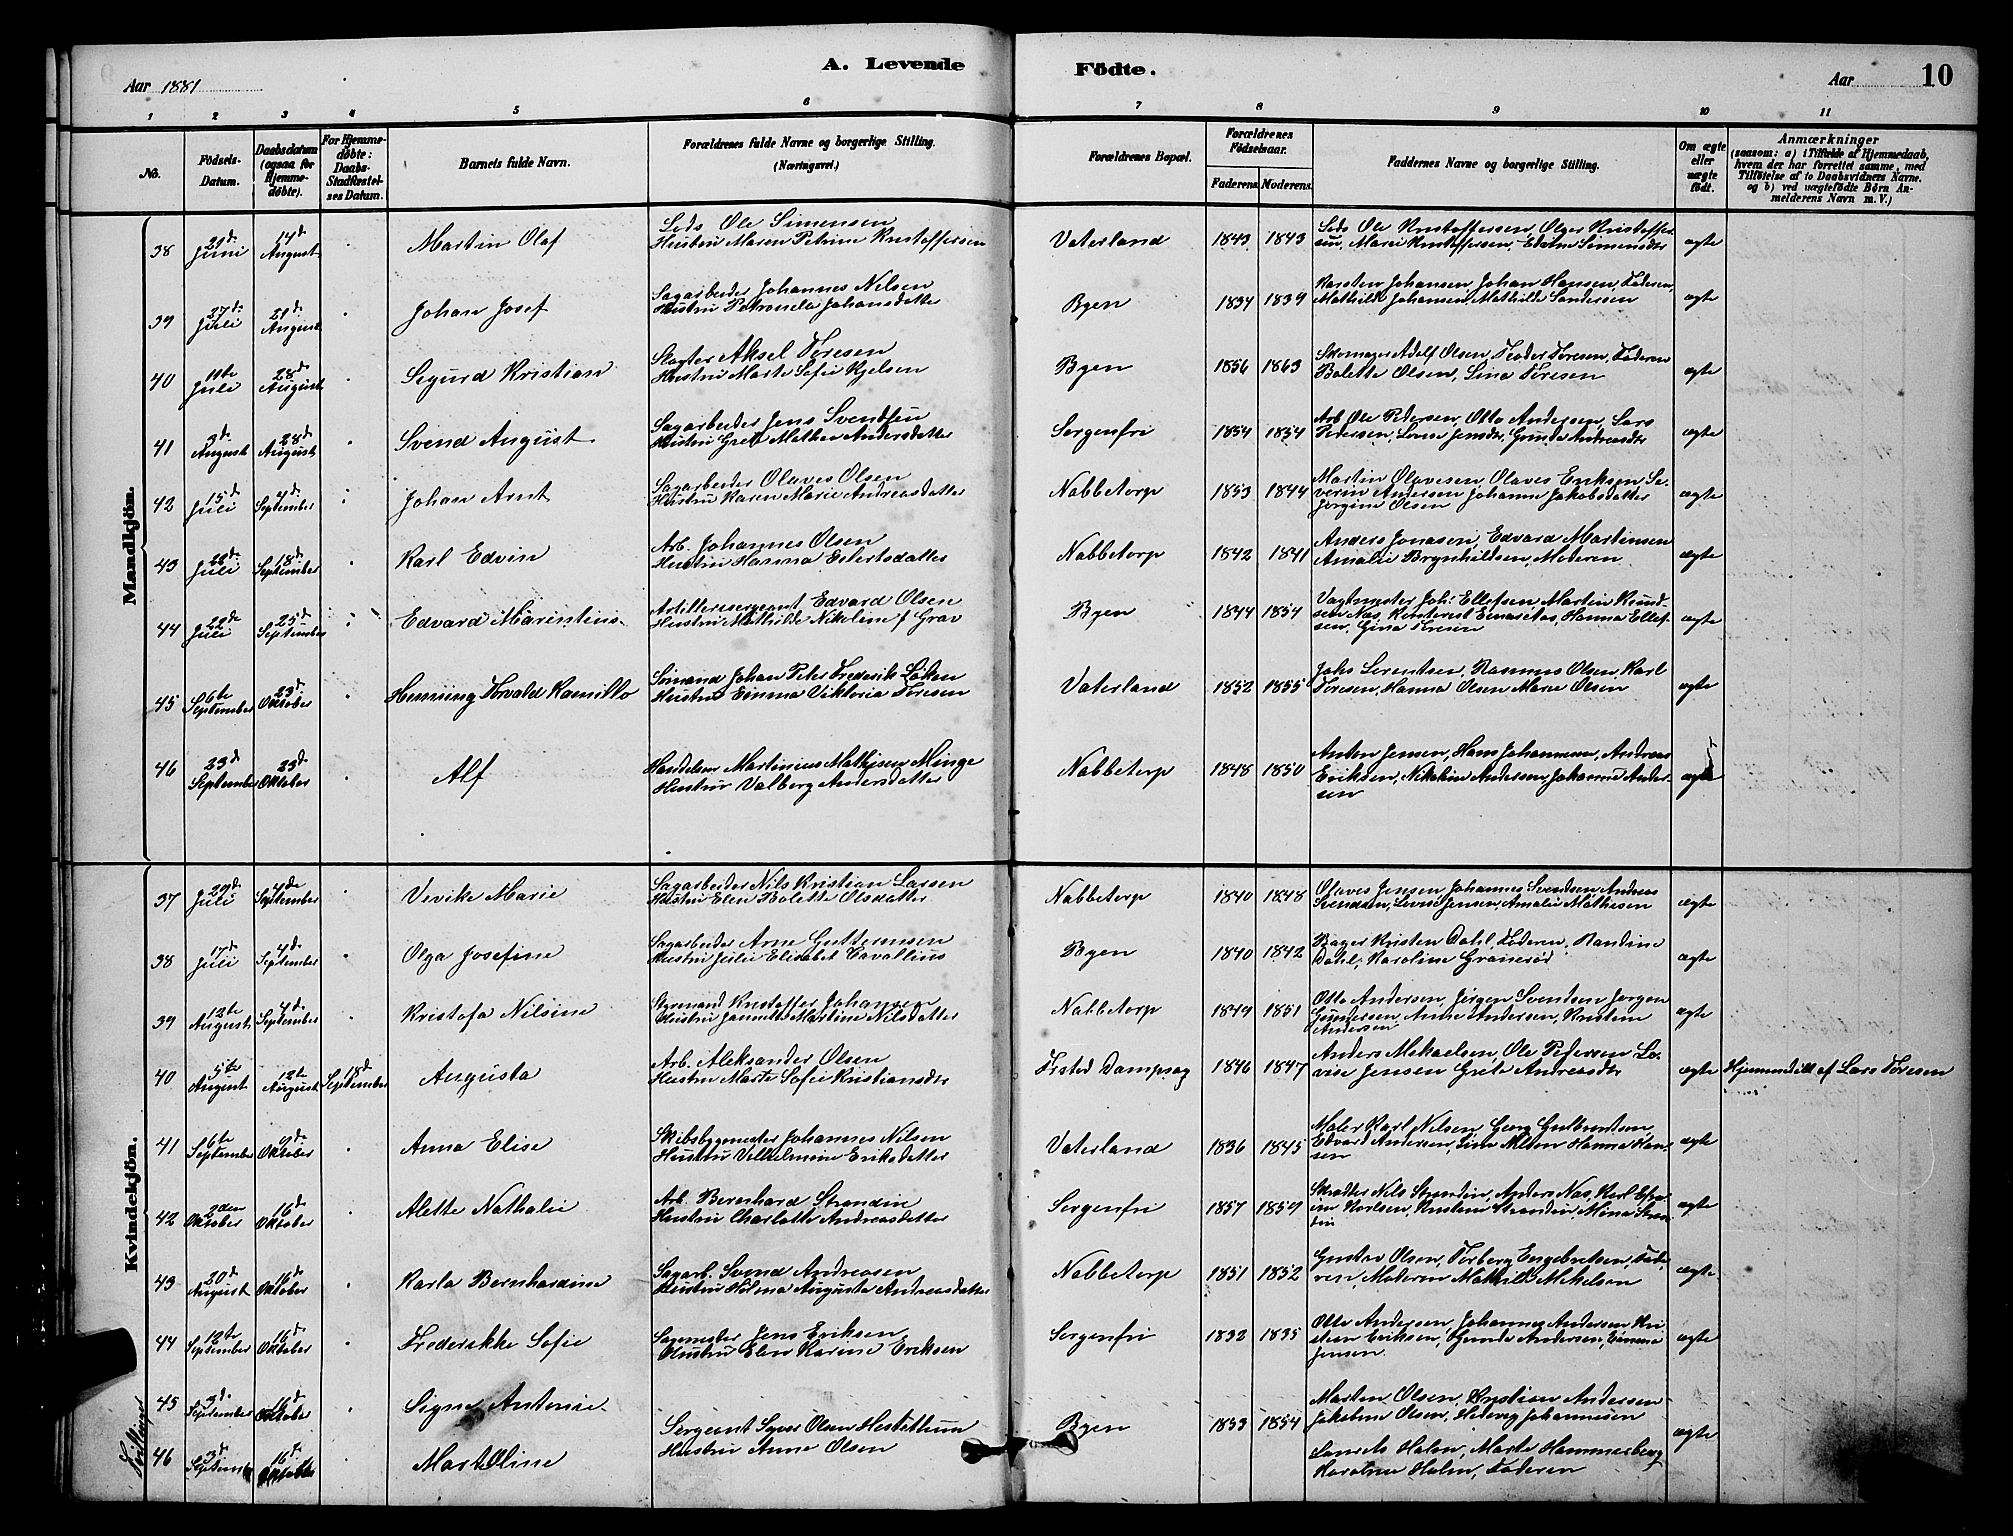 A. Levende Födte.
Aar 1881
Aar 10
1 2 3 4 5 6 7 8 9 10 11
No.
Födsels-
Datum.
Daabsdatum
(ogsaa for
Hjemme-
döbte).
For Hjemme-
döbte:
Daabs-
Stadfæstel-
ses Datum.
Barnets fulde Navn.
Forældrenes fulde Navne og borgerlige Stilling.
(Næringsvei.)
Forældrenes Bopæl.
Forældrenes
Födselsaar.
Faderens. Moderens.
Faddernes Navne og borgerlige Stilling.
Om ægte
eller
uægte
födt.
Anmærkninger
(saasom: a) i Tilfælde af Hjemmedaab,
hvem der har forrettet samme, med
Tilföielse af to Daabsvidners Navne.
og b) ved uægtefödte Börn An-
melderens Navn m. V.)
Mandkjön.
38 21de Juni 14de August Martin Olaf
Lods Ole Simensen
Hustru Maren Petrine Kristoffersen
Vaterland 1843 1843
Lods Ole Kristoffersen, Olger Kristoffer-
sen, Marie Kristoffersen, Simensdtr
ægte
39 27de Juli 21de August Johan Josef
Sagarbeider Johannes Nilsen
Hustru Petronela Johansdatter
Byen 1834 1839
Karsten Johansen, Johan Hansen, Faderen,
Mathilde Johansen, Mathilde Sandersen
ægte
40 11te Juli 28de August Sigurd Kristian
Slagter Aksel Toresen
Hustru Marte Sofie Kjelsen
Byen 1856 1863
Skomager Adolf Olsen, Teodor Toresen, Faderen
Bolette Olsen, Lina Toresen
ægte
41 3de August 28de August Svend August
Sagarbeider Jens Svendsen
Hustru Grete Mathea Andersdatter
Sorgenfri 1854 1854
Arb. Ole Pedersen, Otto Andersen, Lars
Pedersen, Lovise Jensdtr, Gunda Andreasdtr
ægte
42 15de Juli 4de September Johan Arnt
Sagarbeider Olaves Olsen
Hustru Karen Marie Andreasdatter
Nabbetorp 1853 1844
Martin Olavesen, Olaves Eriksen, Se-
verin Andersen, Johanne Jakobsdatter
Jorgine Olsen
ægte
43 22de Juli 18de September Karl Edvin
Arb. Johannes Olsen
Hustru Hanna Eilertsdatter
Nabbetorp 1842 1841
Anders Jonasen, Edvard Martinsen
Amalie Brynhildsen, Moderen
ægte
44 22de Juli 25de September Edvard Marentius
Artillerisergeant Edvard Olsen
Hustru Mathilde Nikoline f. Grav
Byen 1844 1854
Vagtmester Joh: Ellefsen, Martin Knud-
sen Nas, Einar Nas, Hanna Ellef-
sen, Gina Toresen
ægte
45 6te September 23de Oktober Henning Torvald Kamillo
Sömand Johan Peter Frederik Löken
Hustru Emma Viktoria Toresen
Vaterland 1852 1855
Johs Lorentsen, Rasmus Olsen, Karl
Toresen, Hanna Olsen Marie Olsen
ægte
46 23de September 23de Oktober Alf
Handelsm Martinius Mathisen Minge
Hustru Valborg Andersdatter
Nabbetorp 1848 1850
Anton Jensen, Hans Johannesen, Andreas
Eriksen, Nikoline Andersen, Johanne Ander-
sen
ægte
Kvindekjön.
37 29de Juli 4de September Vivike Marie
Sagarbeider Nils Kristian Larsen
Hustru Elen Bolette Olsdatter
Nabbetorp 1840 1848
Olaves Jensen, Johannes Svendsen, Andreas
Svendsen, Lovise Jensen, Amalie Mathisen
ægte
38 17de Juli 4de September Olga Josefine
Sagarbeider Arne Guttormsen
Hustru Julie Elisabet Cavallius
Byen 1840 1842
Bager Kristen Dahl, Faderen, Randine
Dahl, Karoline
ægte
39 12te August 4de September Kristofa Nilsine
Styrmand Kristoffer Johansen
Hustru Jannette Martine Nilsdatter
Nabbetorp 1849 1851
Otto Andersen, Jörgen Svendsen Jörgen
Gundersen, Anne Andersen, Kristine
Andersen
ægte
40 5te August 12te August 18de September Augusta
Arb. Aleksander Olsen
Hustru Marte Sofie Kristiansdtr
Frsted Dampsag 1846 1847
Anders Mikaelsen, Ole Pedersen Lo-
vise Jensen Grete Andreasdtr
ægte Hjemmedöbt af Lars Toresen
41 6te September 9de Oktober Anna Elise
Skibsbygmester Johannes Nilsen
Hustru Vilhelmine Eriksdatter
Vaterland 1836 1845
Maler Karl Nilsen, Georg Gulbrandsen,
Edvard Andersen, Lina Nilsen Hanna Han-
sen
ægte
42 2den Oktober 16de Oktober Alette Nathalie
Arb. Bernhard Strandin
Hustru Charlotte Andreasdatter
Sorgenfri 1857 1859
Skrædder Nils Strandin, Anders Nas, Karl Efra-
im Karlsen, Kristine Strandin, Mina Stran-
din
ægte
43 20de August 16de Oktober Karla Bernhardine
Sagarb. Svend Andreasen
Hustru Hilma Augusta Andreasdatter
Nabbetorp 1851 1852
Gustav Olsen, Torberg Engebretsen, Fade-
ren, Moderen Mathilde Mikelsen
ægte
44 12te September 16de Oktober Frederikke Sofie
Sagmester Jens Eriksen
Hustru Elen Karine Eriksen
Sorgenfri 1832 1835
Otto Andersen, Johannes Andersen Kri-
stian Eriksen, Gunda Andersen, Emma
Jensen
ægte
Tvillinger
45 3de September 16de Oktober Signe Antonie
46 3de September 16de Oktober Mart Oline
Sergeant Syver Olsen
Hustru Anne Olsen
Byen 1833 1854
Marten Olsen, Kristian Andersen
Jakobine Olsen, Hedevig Johannesen
Holm, Marte Hammersberg
Holm, Faderen
ægte